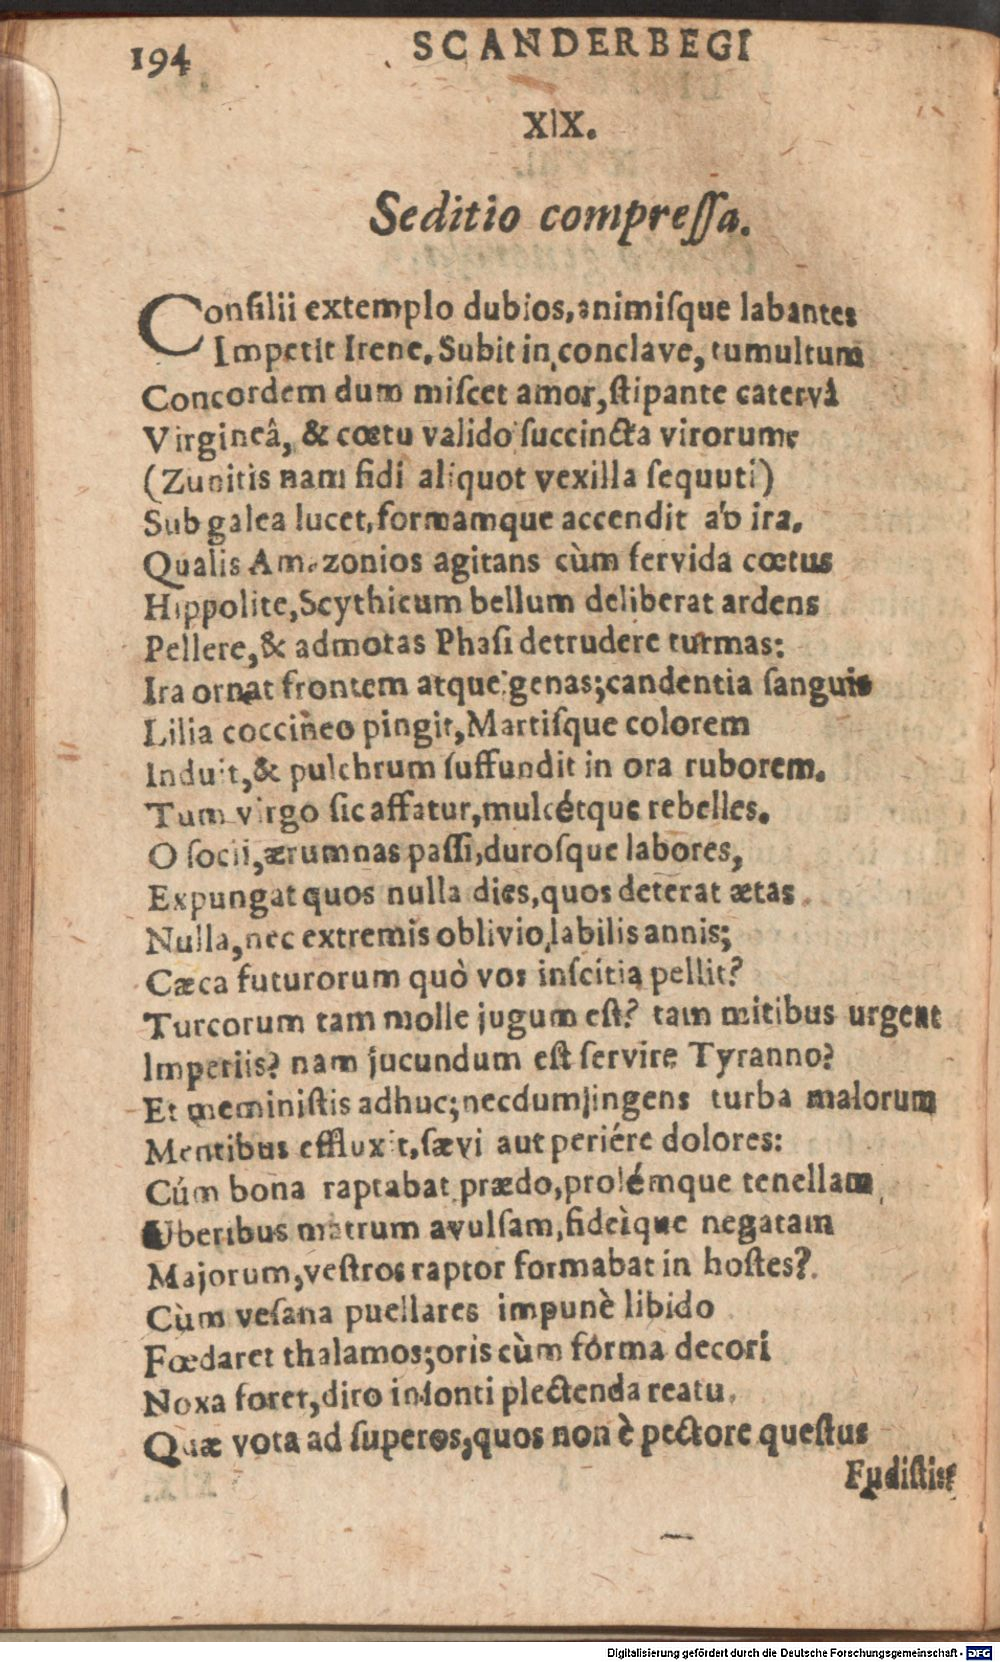 194
SCANDERBEGI
XIX.
Seditio compreſſa.
Conſilii extemplo dubios, animiſque labantes
Impetit Irene. Subit in conclave, tumultum
Concordem dum miſcet amor, ſtipante catervâ
Virgineâ, & cœtu valido ſuccincta virorum
(Zunitis nam fidi aliquot vexilla ſequuti)
Sub galea lucet, formamque accendit ab ira.
Qualis Amazonios agitans cùm fervida cœtus
Hippolite, Scythicum bellum deliberat ardens
Pellere, & admotas Phaſi detrudere turmas:
Ira ornat frontem atque genas; candentia ſanguis
Lilia coccineo pingit, Martiſque colorem
Induit, & pulchrum ſuffundit in ora ruborem.
Tum virgo ſic affatur, mulcétque rebelles.
O ſocii, ærumnas paſſi, duroſque labores,
Expungat quos nulla dies, quos deterat ætas
Nulla, nec extremis oblivio labilis annis;
Cæca futurorum quò vos inſcitia pellit?
Turcorum tam molle jugum eſt? tam mitibus urgent
Imperiis? nam jucundum eſt ſervire Tyranno?
Et meminiſtis adhuc; necdum ingens turba malorum
Mentibus effluxit, ſævi aut periére dolores:
Cúm bona raptabat prædo, prolémque tenellam
Uberibus matrum avulſam, fideìque negatam
Majorum, veſtros raptor formabat in hoſtes?
Cùm veſana puellares impunè libido
Fœdaret thalamos; oris cùm forma decori
Noxa foret, diro inſonti plectenda reatu.
Quæ vota ad ſuperos, quos non è pectore queſtus
Fudiſtis?
Digitalisierung gefördert durch die Deutsche Forschungsgemeinschaft - DFG